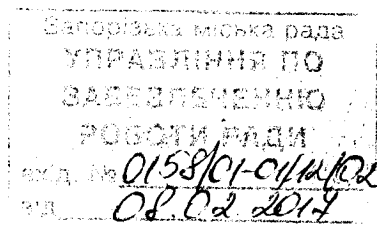 Запорізька міська рада
УПРАВЛІННЯ ПО
ЗАБЕЗПЕЧЕННЮ
РОБОТИ РАДИ
вхід. № 0158/01-01/12/02
від 08.02 2017